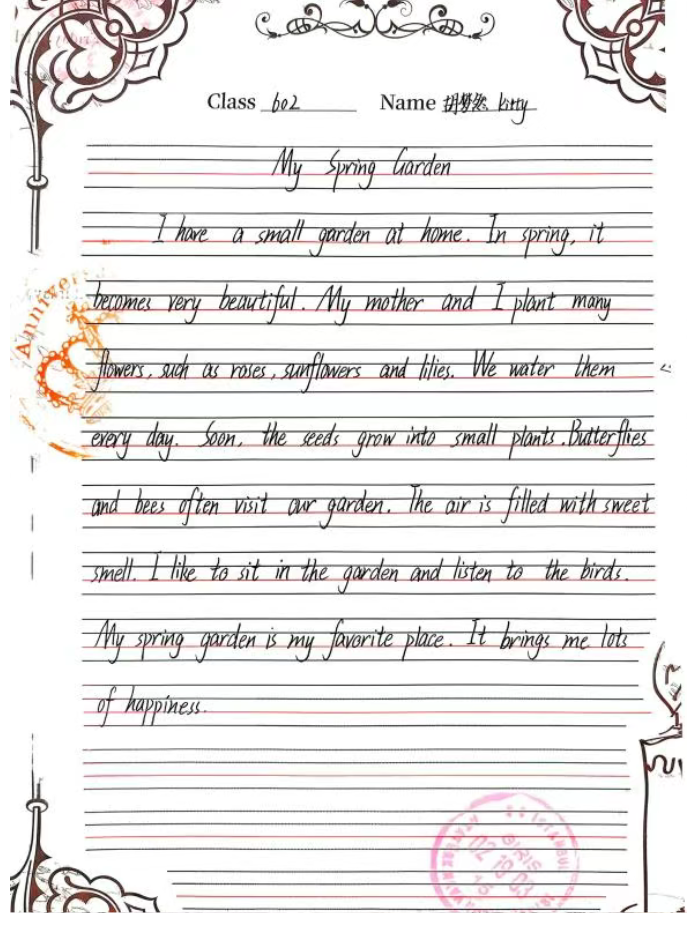 Class 602 Name 胡梦悠 kitty
My Spring Garden
I have a small garden at home. In spring, it
becomes very beautiful. My mother and I plant many
flowers, such as roses, sunflowers and lilies. We water them
every day. Soon, the seeds grow into small plants. Butterflies
and bees often visit our garden. The air is filled with sweet
smell. I like to sit in the garden and listen to the birds.
My spring garden is my favorite place. It brings me lots
of happiness.
Anniver